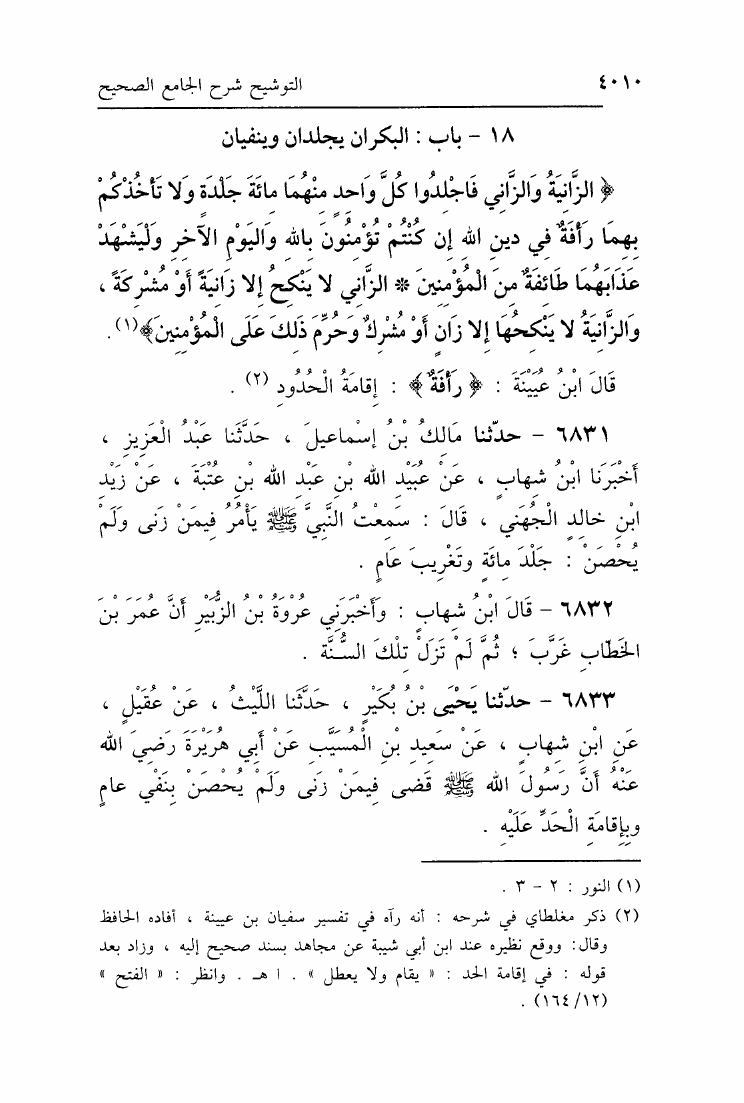 ٤٠١٠ التوشيح شرح الجامع الصحيح
١٨ - باب : البكران يجلدان وينفيان
﴿ الزَّانِيَةُ وَالزَّانِي فَاجْلِدُوا كُلَّ وَاحِدٍ مِنْهُمَا مِائَةَ جَلْدَةٍ وَلا تَأْخُذْكُمْ
بِهِمَا رَأْفَةٌ فِي دِينِ اللهِ إِن كُنْتُمْ تُؤْمِنُونَ بِاللهِ وَالْيَوْمِ الآخِرِ وَلْيَشْهَدْ
عَذَابَهُمَا طَائِفَةٌ مِنَ الْمُؤْمِنِينَ * الزَّانِي لا يَنْكِحُ إِلا زَانِيَةً أَوْ مُشْرِكَةً ،
وَالزَّانِيَةُ لا يَنْكِحُهَا إِلا زَانٍ أَوْ مُشْرِكٌ وَحُرِّمَ ذَلِكَ عَلَى الْمُؤْمِنِينَ﴾(١) .
قَالَ ابْنُ عُيَيْنَةَ : ﴿ رَأْفَةٌ ﴾ : إِقَامَةُ الْحُدُودِ (٢) .
٦٨٣١ - حدّثنا مَالِكُ بْنُ إِسْماعيلَ ، حَدَّثَنا عَبْدُ الْعَزِيزِ ،
أَخْبَرَنا ابْنُ شِهابٍ ، عَنْ عُبَيْدِ اللهِ بْنِ عَبْدِ اللهِ بْنِ عُتْبَةَ ، عَنْ زَيْدِ
ابْنِ خالِدٍ الْجُهَنِي ، قَالَ : سَمِعْتُ النَّبِيَّ ﷺ يَأْمُرُ فِيمَنْ زَنى وَلَمْ
يُحْصَنْ : جَلْدَ مائَةٍ وتَغْرِيبَ عَامٍ .
٦٨٣٢ - قَالَ ابْنُ شِهابٍ : وَأَخْبَرَنِي عُرْوَةُ بْنُ الزُّبَيْرِ أَنَّ عُمَرَ بْنَ
الخَطّابِ غَرَّبَ ؛ ثُمَّ لَمْ تَزَلْ تِلْكَ السُّنَّةَ .
٦٨٣٣ - حدّثنا يَحْيَى بْنُ بُكَيْرٍ ، حَدَّثَنا اللَّيْثُ ، عَنْ عُقَيْلٍ ،
عَنِ ابْنِ شِهابٍ ، عَنْ سَعِيدِ بْنِ الْمُسَيَّبِ عَنْ أَبِي هُرَيْرَةَ رَضِيَ اللهُ
عَنْهُ أَنَّ رَسُولَ اللهِ ﷺ قَضى فِيمَنْ زَنى وَلَمْ يُحْصَنْ بِنَفْيِ عامٍ
وبِإِقامَةِ الْحَدِّ عَلَيْهِ .
(١) النور : ٢ - ٣ .
(٢) ذكر مغلطاي في شرحه : أنه رآه في تفسير سفيان بن عيينة ، أفاده الحافظ
وقال: ووقع نظيره عند ابن أبي شيبة عن مجاهد بسند صحيح إليه ، وزاد بعد
قوله : في إقامة الحد : « يقام ولا يعطل » . ا هـ . وانظر : « الفتح »
(١٦٤/١٢) .